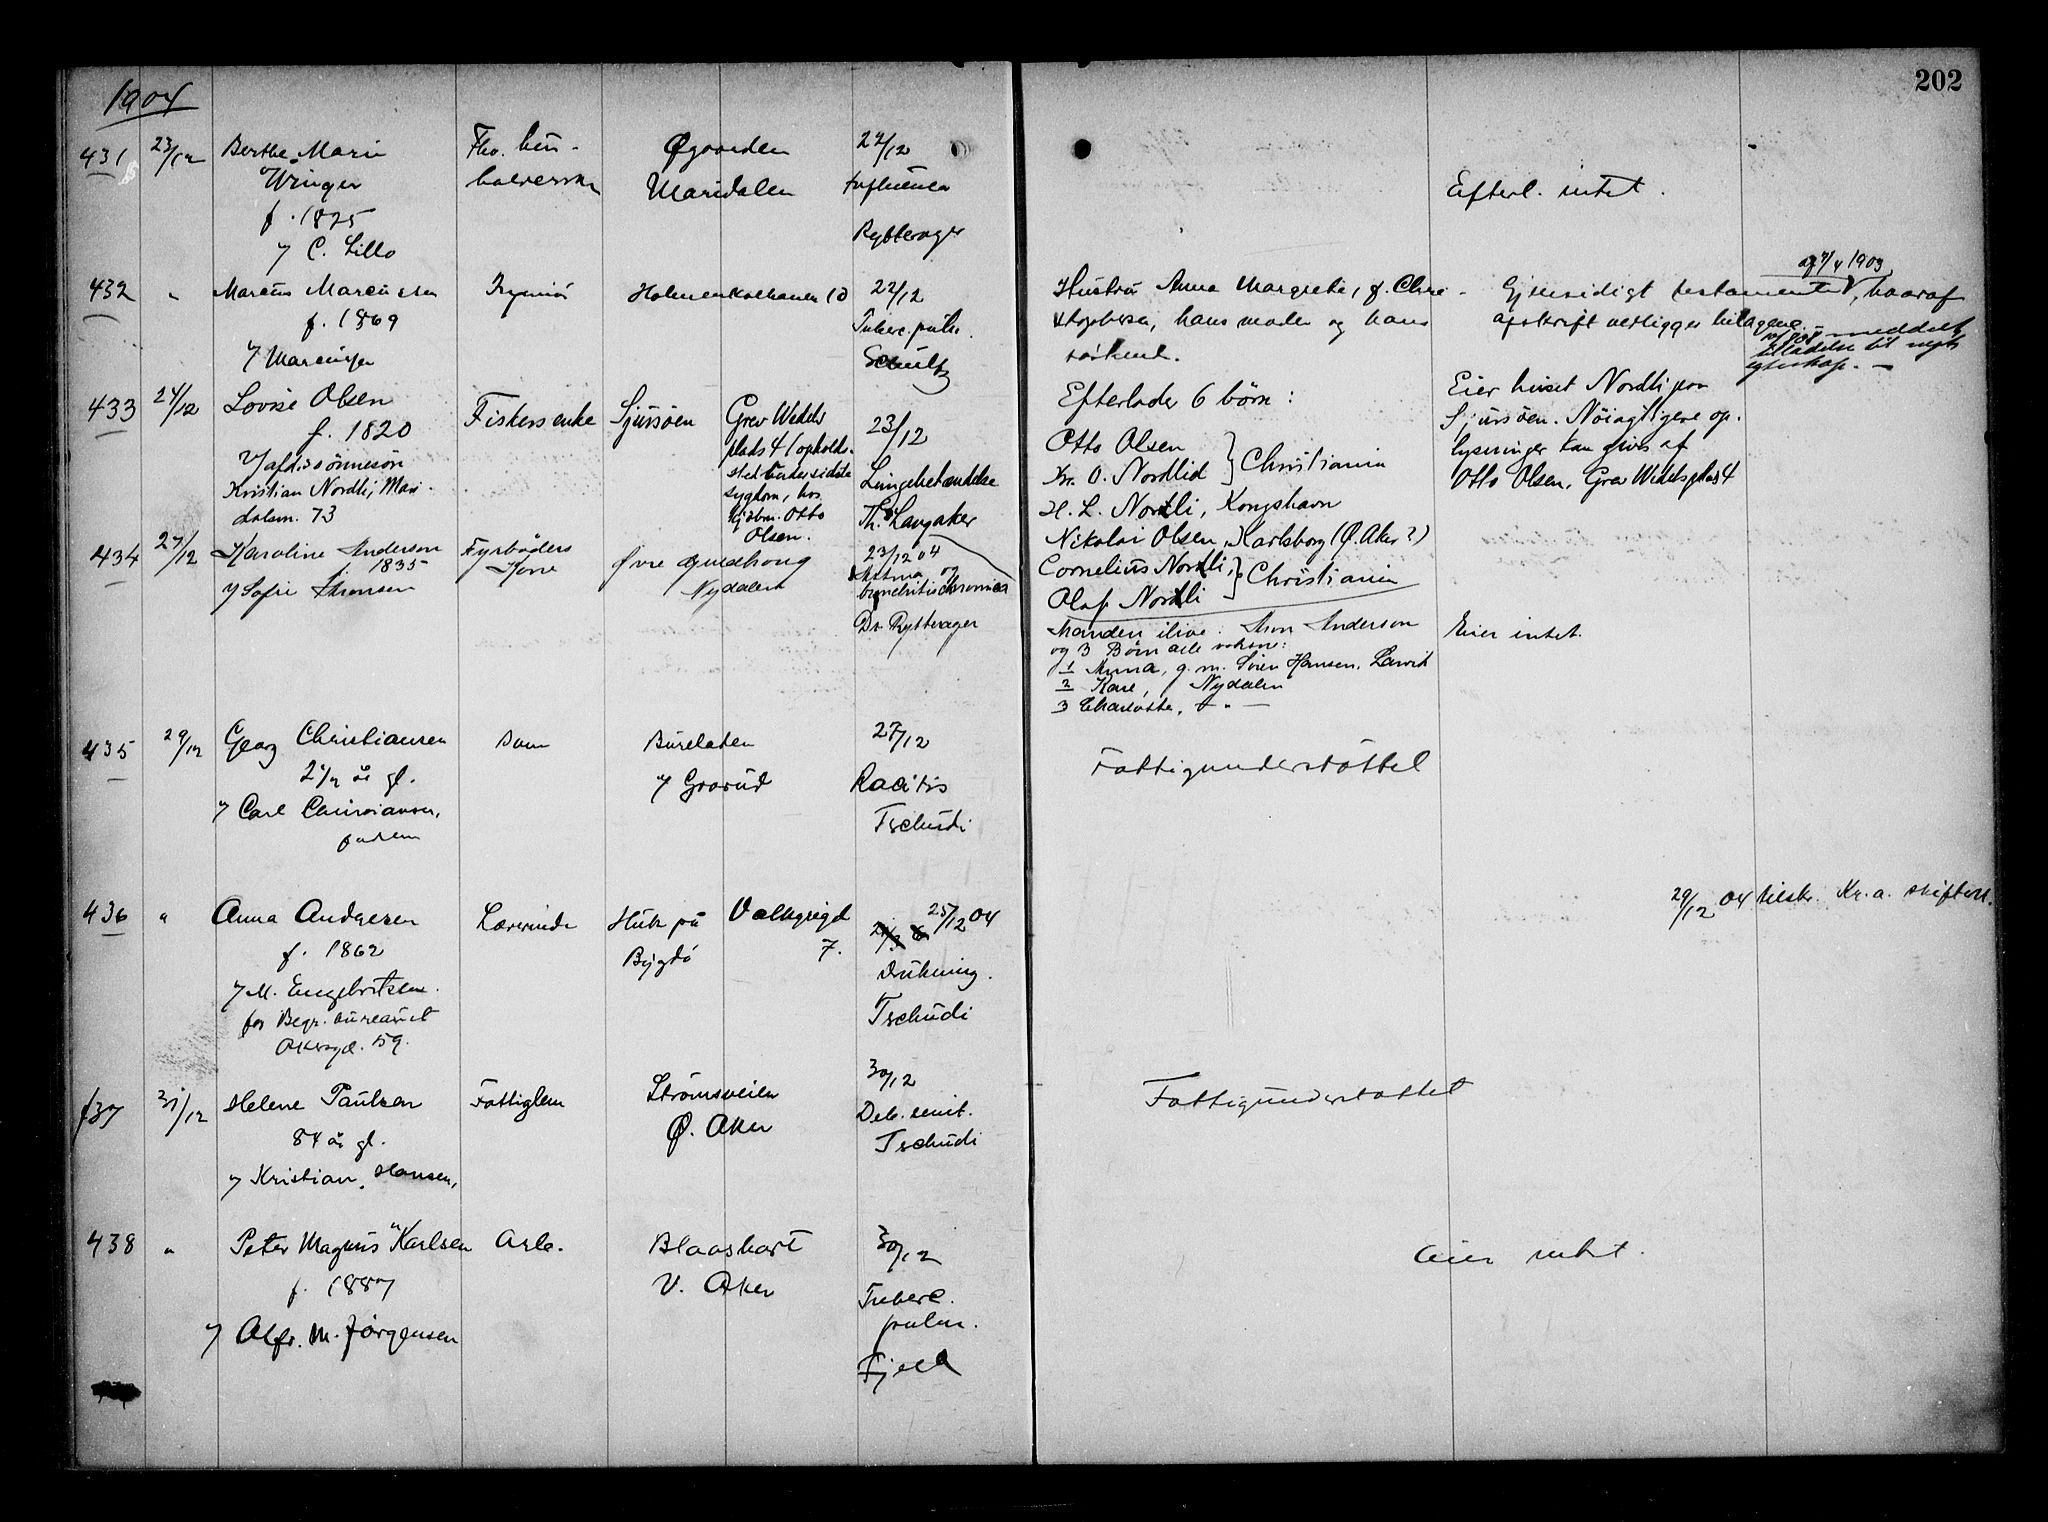 1904
202
431 23/12 Berthe Marie
Winger
f. 1825
v/ C. Lillo
Fhv. hus-
holderske
Øgaarden
Maridalen
22/12
Influenza
Rytterager
Efterl. intet.
432 " Marcus Marcussen
f. 1869
v/ Marcussen
Holmenkolbanen 10
22/12
Tuberc. pulm.
Schultz
Hustru Anna Margrete, f. Chri-
stophersen, hans moder og hans
søskend.
af 7/4 1903
Gjensidigt testamente, hvoraf
afskrift vedligger bilagene.
meddelt
tilladelse til
egteskap. —
433 24/12 Lovise Olsen
f. 1820
v/ afd.s sönnesön
Kristian Nordli, Mari-
dalsv. 73
Fiskersenke
Sjursøen
Grev Wedels
plads 4 (opholds-
sted under sidste
sygdom, hos
kjöbm. Otto
Olsen.
23/12
Lungebetændelse
Th. Langaker
Efterlader 6 börn:
Otto Olsen
Kr. O. Nordlid } Christiania
H. L. Nordli, Kongshavn
Nikolai Olsen, Karlsborg (Ø. Aker?)
Cornelius Nordli, } Christiania
Olaf Nordli
Eier huset Nordli paa
Sjursøen. Nöiagtigere op-
lysninger kan gives af
Otto Olsen, Grev Wedels plads 4
434 27/12 Karoline Anderson
1835
v/ Sofie Thronsen
Fyrbøders
Kone
Øvre
Nydalen
23/12 04
Astma og
bronchitis chronica
Dr Rytterager
Manden ilive: Anderson
og 3 Børn alle voksne:
1 Anna, g. m. Sören Hansen, Larvik
2 Karl, Nydalen
3 Charlotte, — " —
Eier intet.
435 29/12 Georg Christiansen
2 1/2 år gl.
v/ Carl Christiansen,
faderen
Barn
Bureløkken
v/ Grorud
27/12
Racitis
Tschudi
Fattigunderstøttet
436 " Anna Andresen
f. 1862
v/ M. Engebretsen
for Begr. bureauet
Akersgd. 59.
Lærerinde
Huk på
Bygdö
Valkyriegd
7.
25/12 04
Drukning.
Tschudi
29/12 04 tilskr. Kr.a. skifter.
437 31/12 Helene Paulsen
84 år gl.
v/ Kristian Hansen,
Fattiglem
Strömsveien
Ø. Aker
30/12
Deb. senil.
Tschudi
Fattigunderstøttet
438 " Peter Magnus Karlsen
f. 1887
v/ Alfr. M. Jørgensen
Arb.
Blaasbort
V. Aker
30/12
Tuberc.
pulm.
Fjeld
Eier intet.